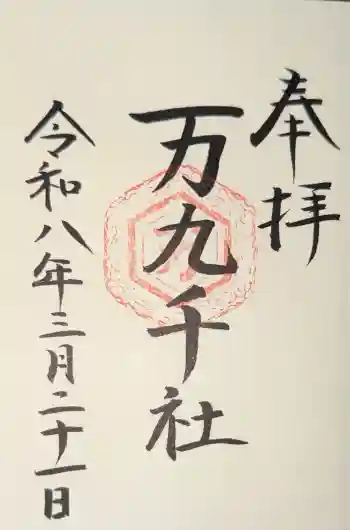 奉拝
万九千社
令和八年三月二十一日